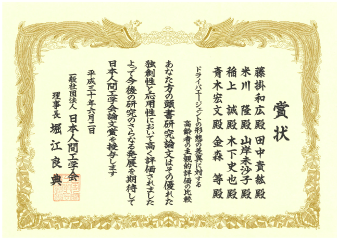 賞状
藤掛和広殿 田中貴紘殿
米川 隆殿 山岸未沙子殿
稲上 誠殿 木下史也殿
青木宏文殿 金森 等殿
ドライバエージェントの形態の差異に対する
高齢者の主観的評価の比較
あなた方の頭書研究論文はその優れた
独創性と応用性において高く評価されました
よって今後の研究のさらなる発展を期待して
日本人間工学会論文賞を授与します
平成三十年六月二日
一般社団法人 日本人間工学会
理事長 堀江良典